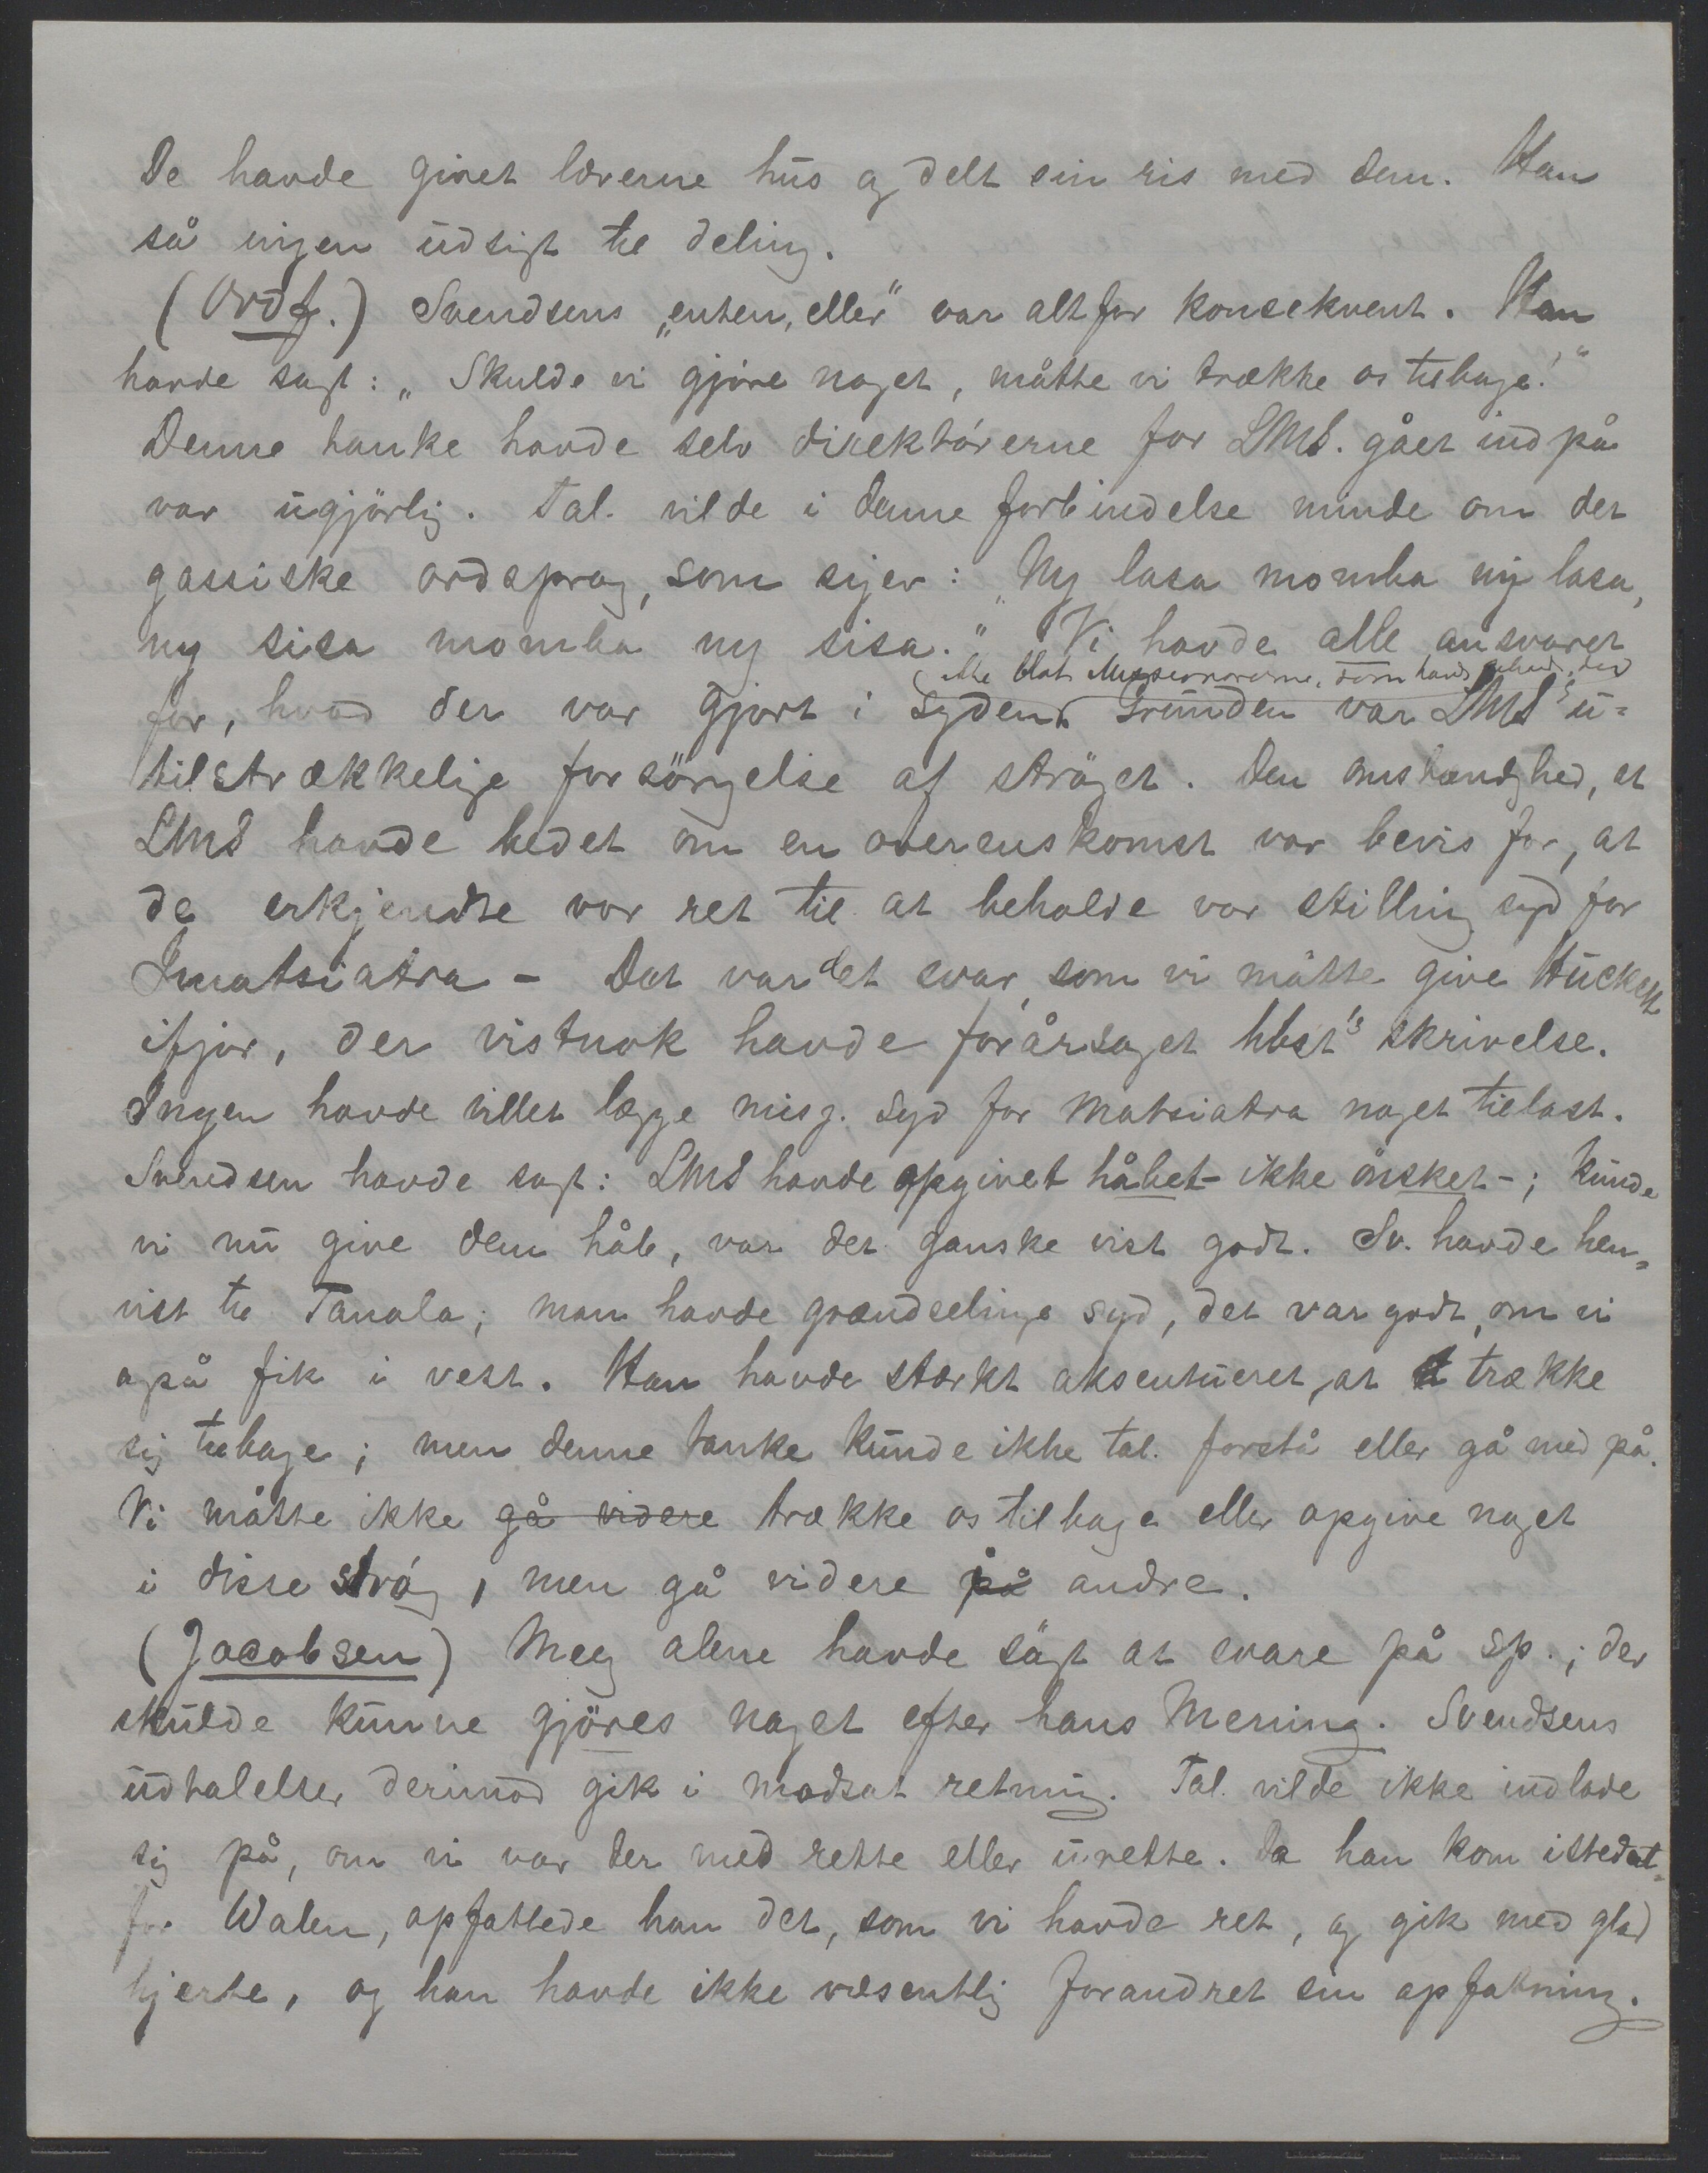 De havde givet lærerne hus og delt sin ris med dem. Han
så ingen udsigt til deling.
(Ordf.) Svendsens „enten, eller“ var altfor konsekvent. Han
havde sagt: „Skulde vi gjöre noget, måtte vi trække os tilbage!“
Denne tanke havde selv direktörerne for LMS. gået ind på
var ugjörlig. Tal. vilde i denne forbindelse minde om det
gassiske ordsprog, som siger: „Ny lasa momba ny lasa,
ny sisa momba ny sisa.“ Vi havde alle ansvaret
ikke blot Missionærerne, som havde
for, hvad der var gjort i syden. Grunden var LMS's u-
tilstrækkelige forsörgelse af ströget. Den omstændighed, at
LMS havde bedet om en overenskomst var bevis for, at
de erkjendte vor ret til at beholde vor stilling syd for
Imatsiatra - Det var det svar, som vi måtte give Hückett
ifjor, der vistnok havde forårsaget hbst's skrivelse.
Ingen havde villet lægge misj. syd for Matsiatra noget tillast.
Svendsen havde sagt: LMS havde opgivet håbet - ikke önsket -; kunde
vi nu give dem håb, var det ganske vist godt. Sv. havde hen-
vist til Tanala; man havde grændselinje syd, det var godt, om vi
også fik i vest. Han havde stærkt aksentueret, at trække
sig tilbage; men denne tanke kunde ikke tal. forstå eller gå med på.
Vi måtte ikke gå videre trække os tilbage eller opgive noget
i disse strög, men gå videre på andre.
(Jacobsen) Meeg alene havde sögt at svare på sp.; der
skulde kunne gjöres noget efter hans Mening. Svendsens
udtalelser derimod gik i modsat retning. Tal. vilde ikke indlade
sig på, om vi var der med rette eller urette. Da han kom istedet-
for Walen, opfattede han det, som vi havde ret, og gik med glad
hjerte, og han havde ikke væsentlig forandret sin opfatning.